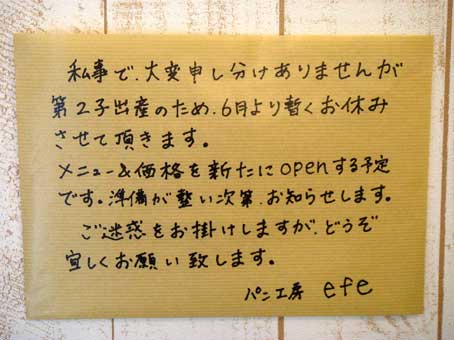 私事で、大変申し分けありませんが
第2子出産のため、6月より暫くお休み
させて頂きます。
メニュー&価格を新たにopenする予定
です。準備が整い次第、お知らせします。
ご迷惑をお掛けしますが、どうぞ
宜しくお願い致します。
パン工房 efe